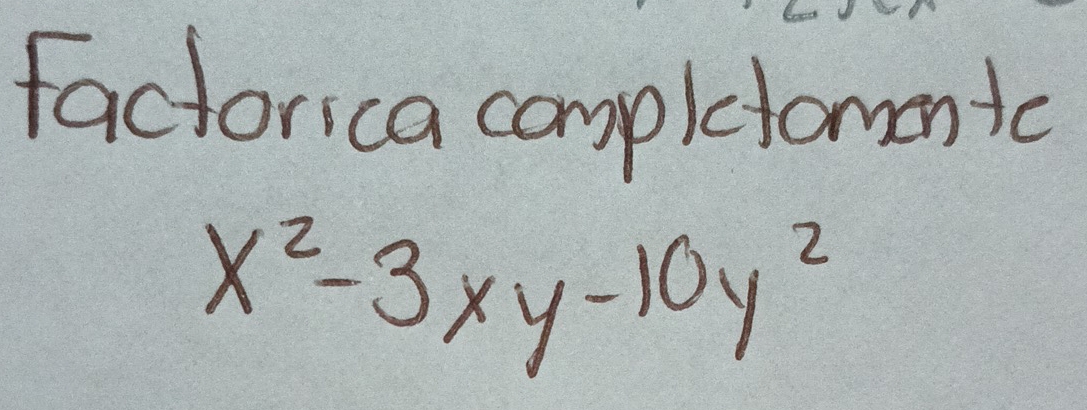 Factorica completamente
x² - 3xy - 10y²